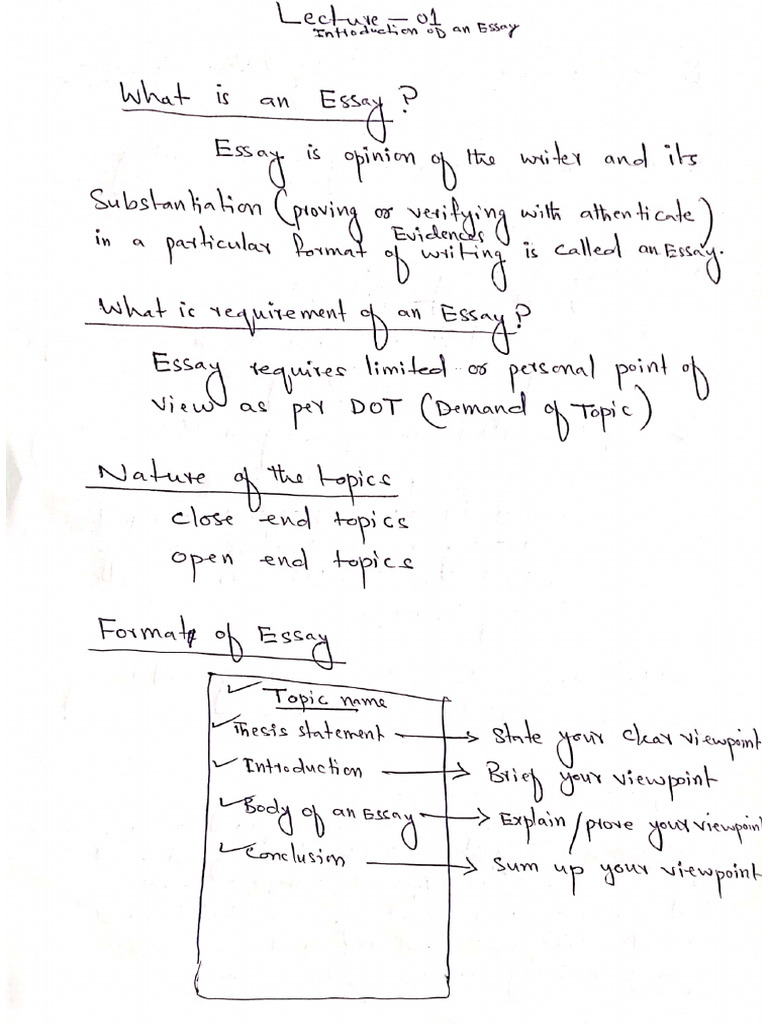 Lecture - 01
Introduction of an Essay
What is an Essay?
Essay is opinion of the writer and its
Substantiation (proving or verifying with athenticate)
Evidences
in a particular format of writing is called an Essay.
What is requirement of an Essay?
Essay requires limited or personal point of
view as per DOT (Demand of Topic)
Nature of the topics
close end topics
open end topics
Format of Essay
Topic name
Thesis statement → State your clear viewpoint
Introduction → Brief your viewpoint
Body of an Essay → Explain/prove your viewpoint
Conclusion → Sum up your viewpoint